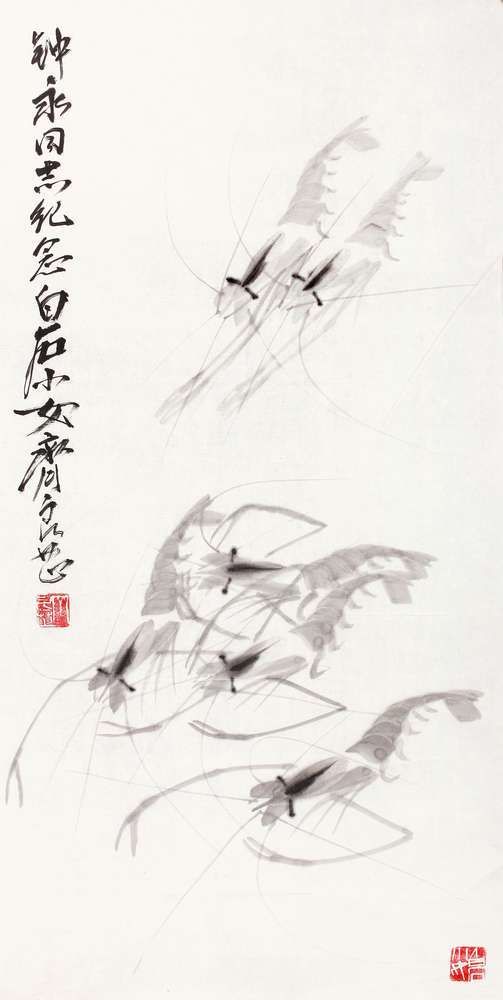 钟永同志纪念白石小女齐良芷